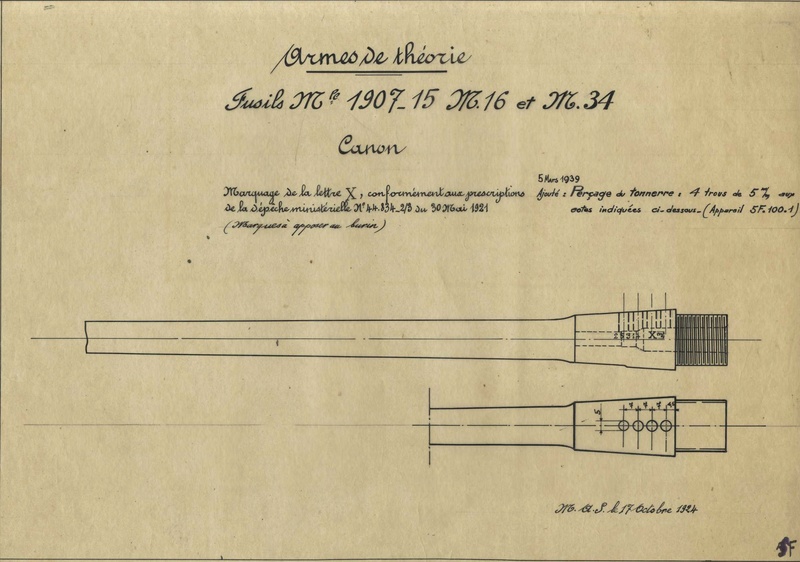 Armes de théorie
Fusils Mle 1907-15 M.16 et M.34
Canon
Marquage de la lettre X, conformément aux prescriptions
de la dépêche ministérielle N° 44.834-2/3 du 30 Mai 1921
(Marques à apposer au burin)
5 Mars 1939
Ajouté : Perçage du tonnerre : 4 trous de 5 m/m aux
cotes indiquées ci-dessous_(Appareil SF.100.1)
X
5 7 7 7
M. A. S. le 17 Octobre 1924